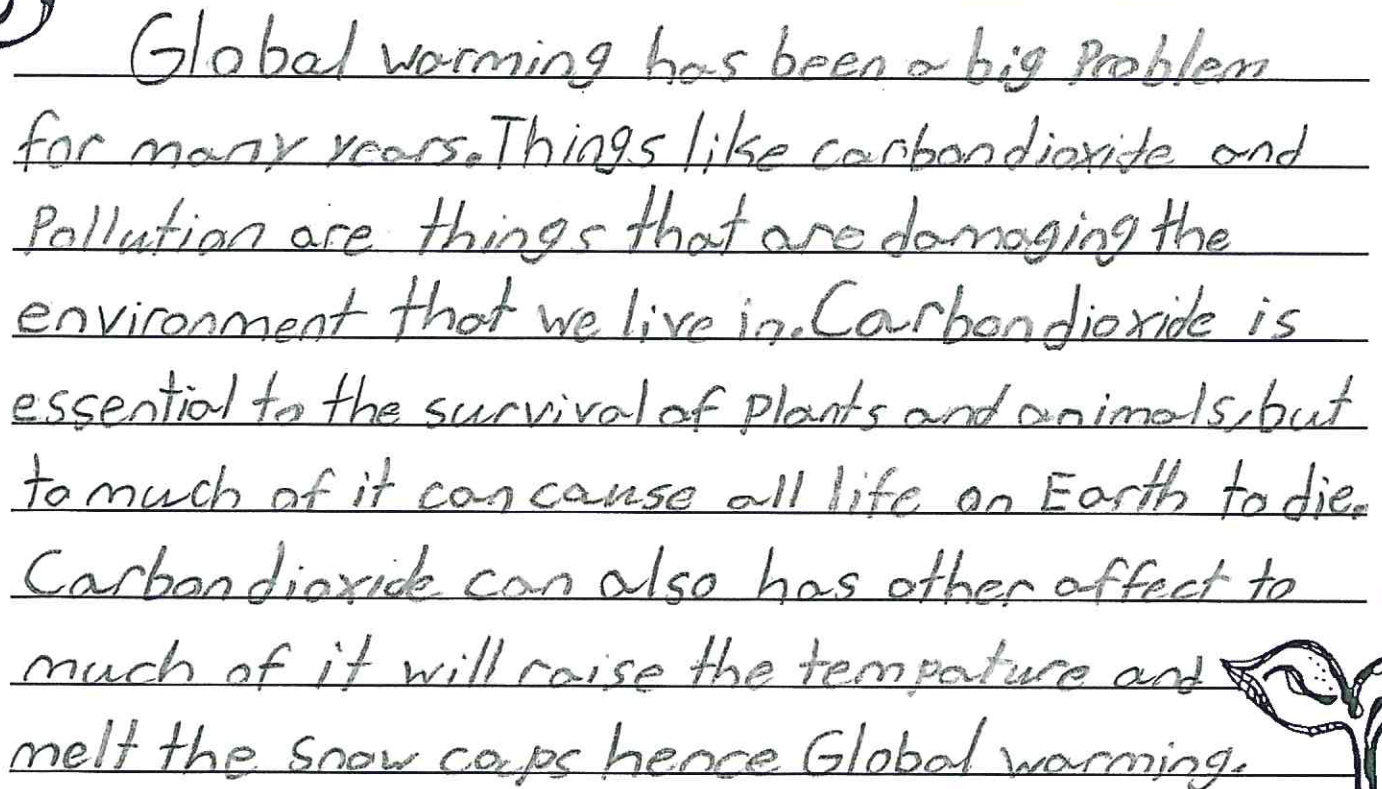 Global warming has been a big Problem
for many years. Things like carbondioxide and
Pollution are things that are damaging the
environment that we live in. Carbondioxide is
essential to the survival of plants and animals, but
to much of it can cause all life on Earth to die.
Carbondioxide can also has other affect to
much of it will raise the tempature and
melt the snow caps hence Global warming.